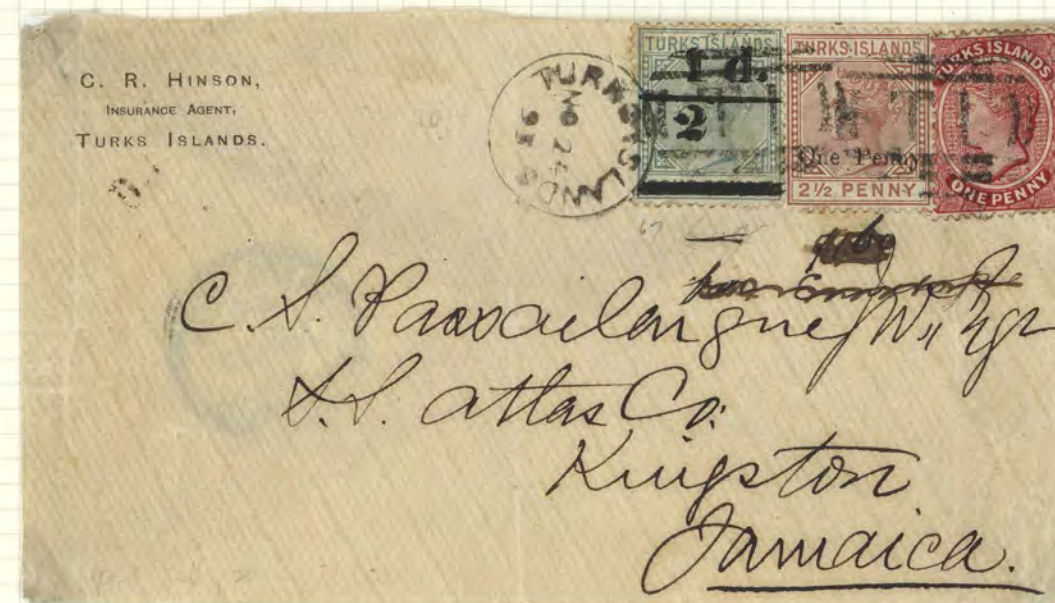 C. R. HINSON,
INSURANCE AGENT,
TURKS ISLANDS.
TURKS ISLANDS
NO 24
95
TURKS ISLANDS
1 d.
2
TURKS ISLANDS
One Penny
2½ PENNY
TURKS ISLANDS
ONE PENNY
T I
C. S.
S.S. Atlas Co.
Kingston
Jamaica.